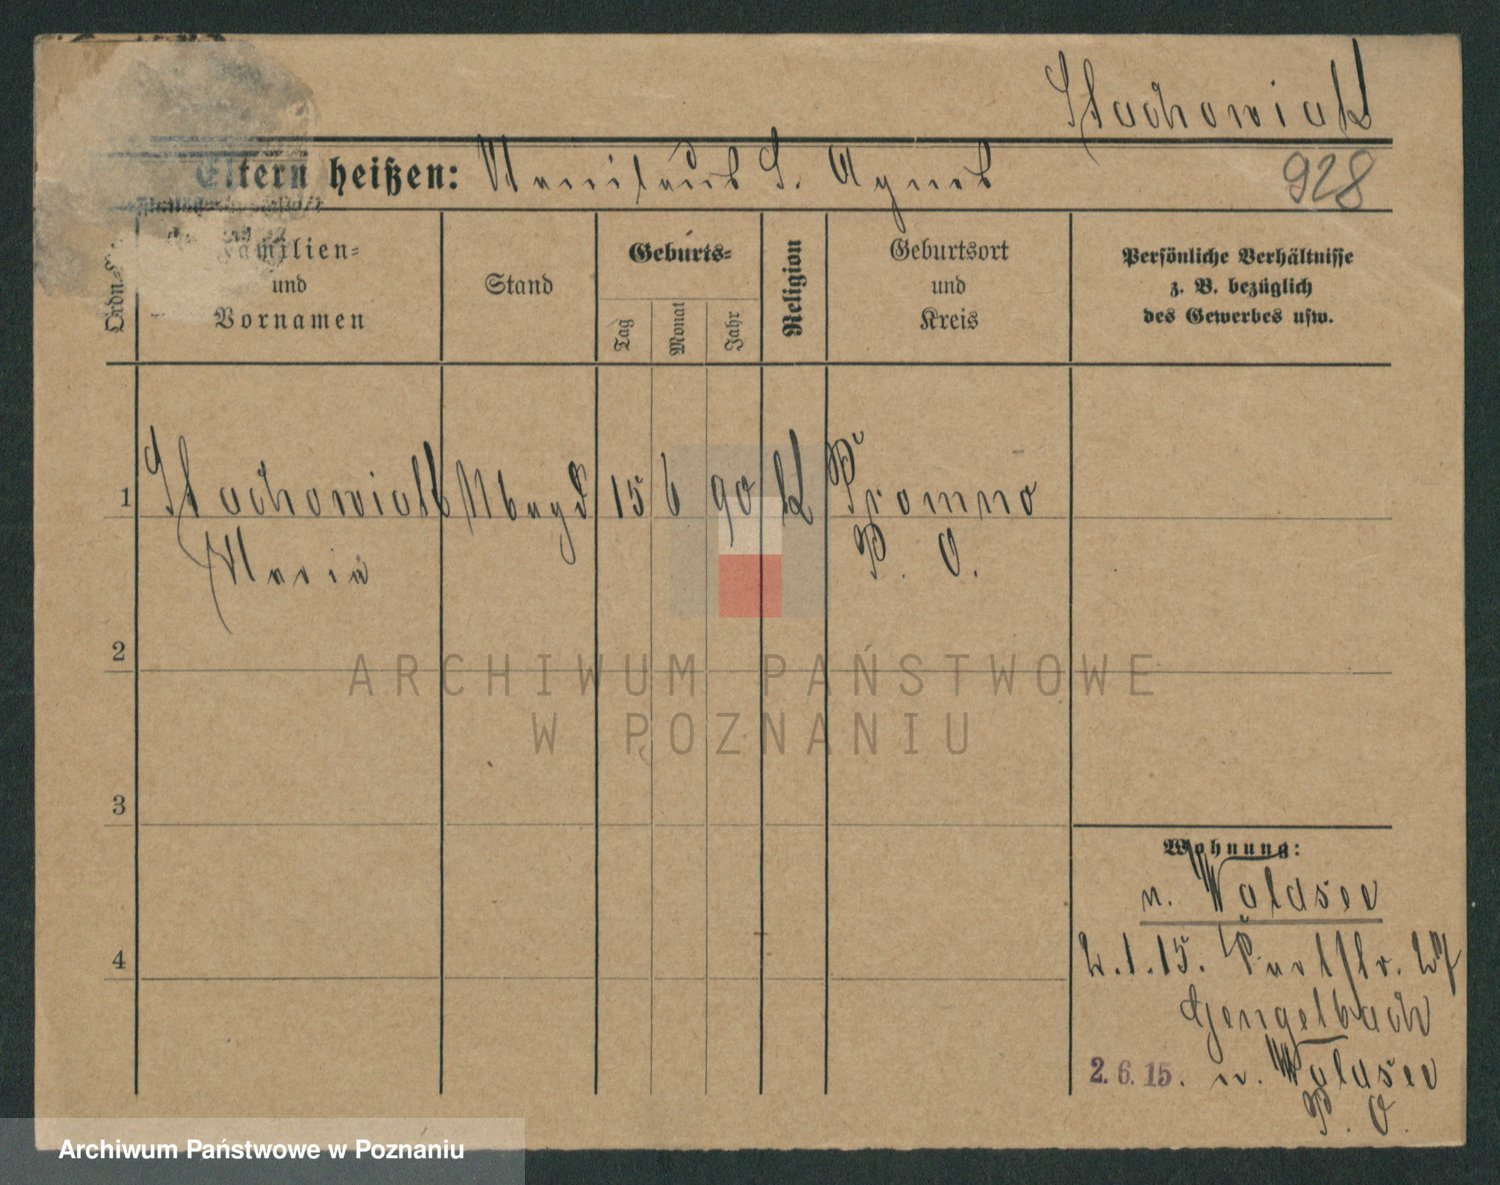 Stachowiak
Eltern heißen: Stanislaus S. Agnes
928
Ordn.-
Familien-
und
Vornamen
Stand
Geburts-
Tag
Monat
Jahr
Religion
Geburtsort
und
Kreis
Persönliche Verhältnisse
z. B. bezüglich
des Gewerbes usw.
1 Stachowiak Magd 15 6 90 K Promno
Maria P. O.
2
3
4
Wohnung:
n. Waldsee
2.1.15. Parkstr. 27
Gengelbach
2.6.15. n. Waldsee
P. O.
ARCHIWUM PAŃSTWOWE
W POZNANIU
Archiwum Państwowe w Poznaniu